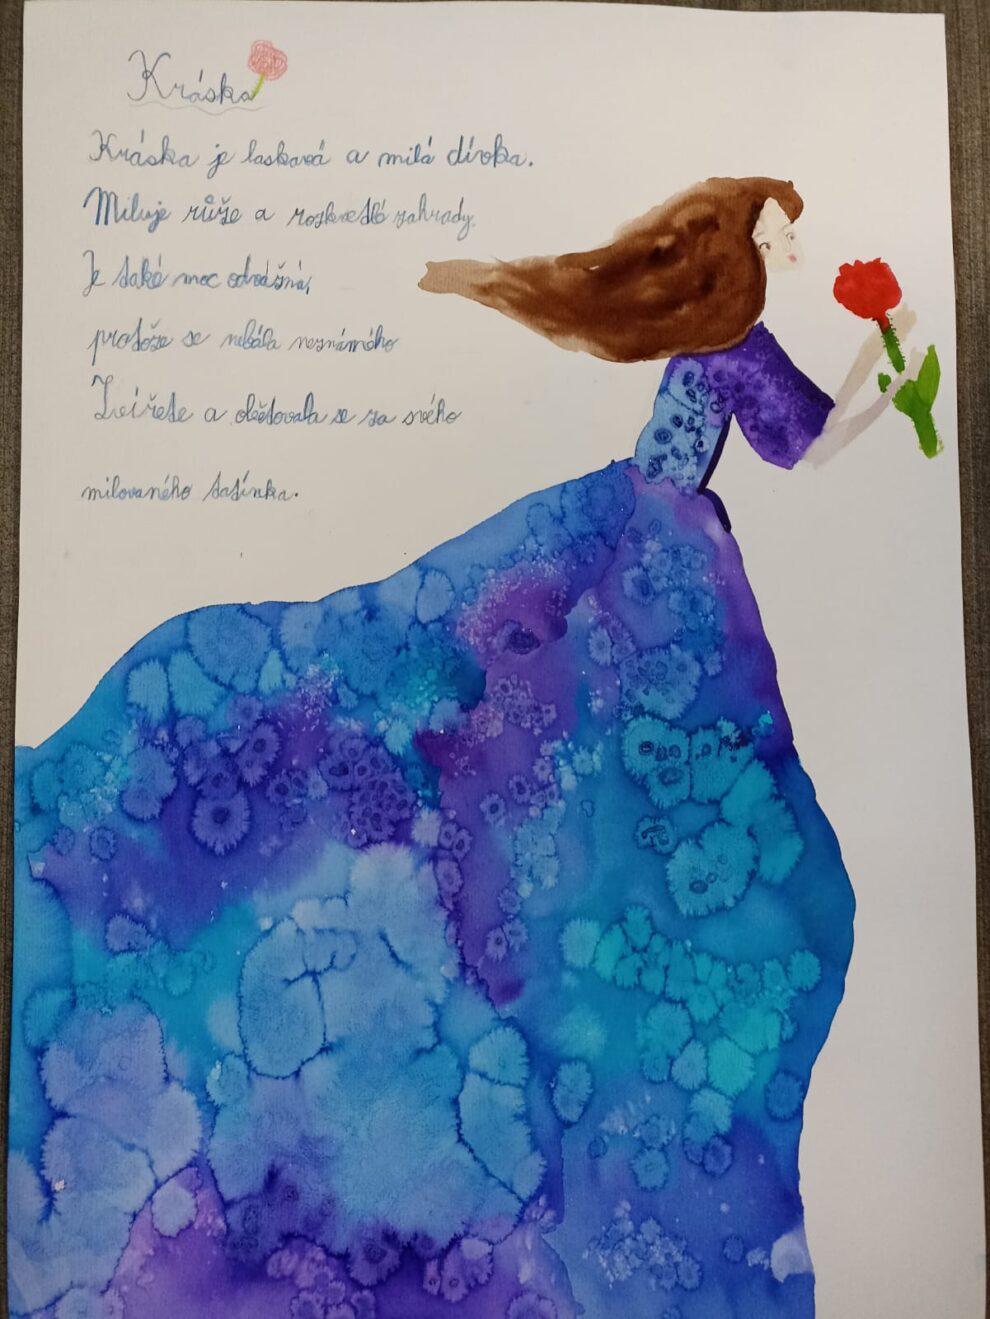 Kráska
Kráska je laskavá a milá dívka.
Miluje růže a rozkvetlé zahrady.
Je také moc odvážná,
protože se nebála neznámého
Zvířete a obětovala se za svého
milovaného tatínka.